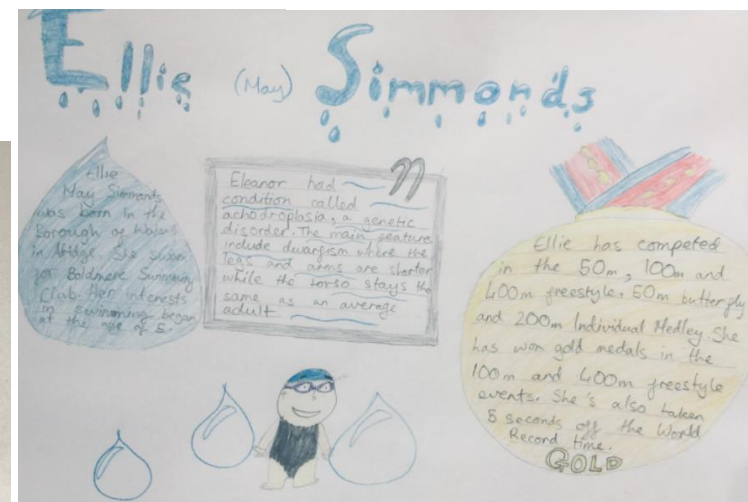 Ellie (May) Simmonds
Ellie
May Simmonds
was born in the
Borough of
in Aldridge. She swam
for Boldmere Swimming
Club. Her interests
in swimming began
at the age of 5.
Eleanor had
condition called
achodroplasia, a genetic
disorder. The main feature
include dwarfism where the
legs and arms are shorter
while the torso stays the
same as an average
adult
Ellie has competed
in the 50m, 100m and
400m freestyle, 50m butterfly
and 200m Individual Medley. She
has won gold medals in the
100m and 400m freestyle
events. She's also taken
5 seconds off the World
Record time.
GOLD